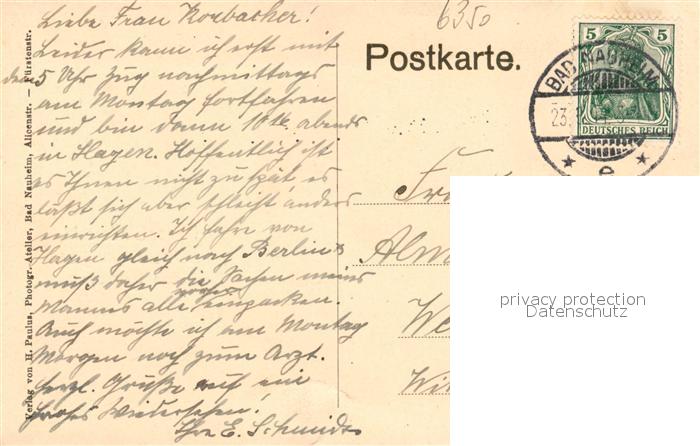 Liebe Frau Korbacher!
Leider kann ich erst mit
dem 5 Uhr Zug nachmittags
am Montag fortfahren
und bin dann 10 16 abends
in Hagen. Hoffentlich ist
es Ihnen nicht zu spät, es
läßt sich aber nicht anders
einrichten. Ich fahre von
Hagen gleich nach Berlin &
muß daher die Sachen meines
Mannes alle vorher einpacken.
Auch möchte ich am Montag
Morgen noch zum Arzt.
Herzl. Grüße auf ein
frohes Wiedersehen!
Ihre E. Schmidt
Verlag von H. Paulus, Photogr. Atelier, Bad Nauheim, Alicenstr. Fürstenstr.
6350
Postkarte.
5 5
DEUTSCHES REICH
BAD NAUHEIM
23.
* e *
Fra
We
privacy protection
Datenschutz